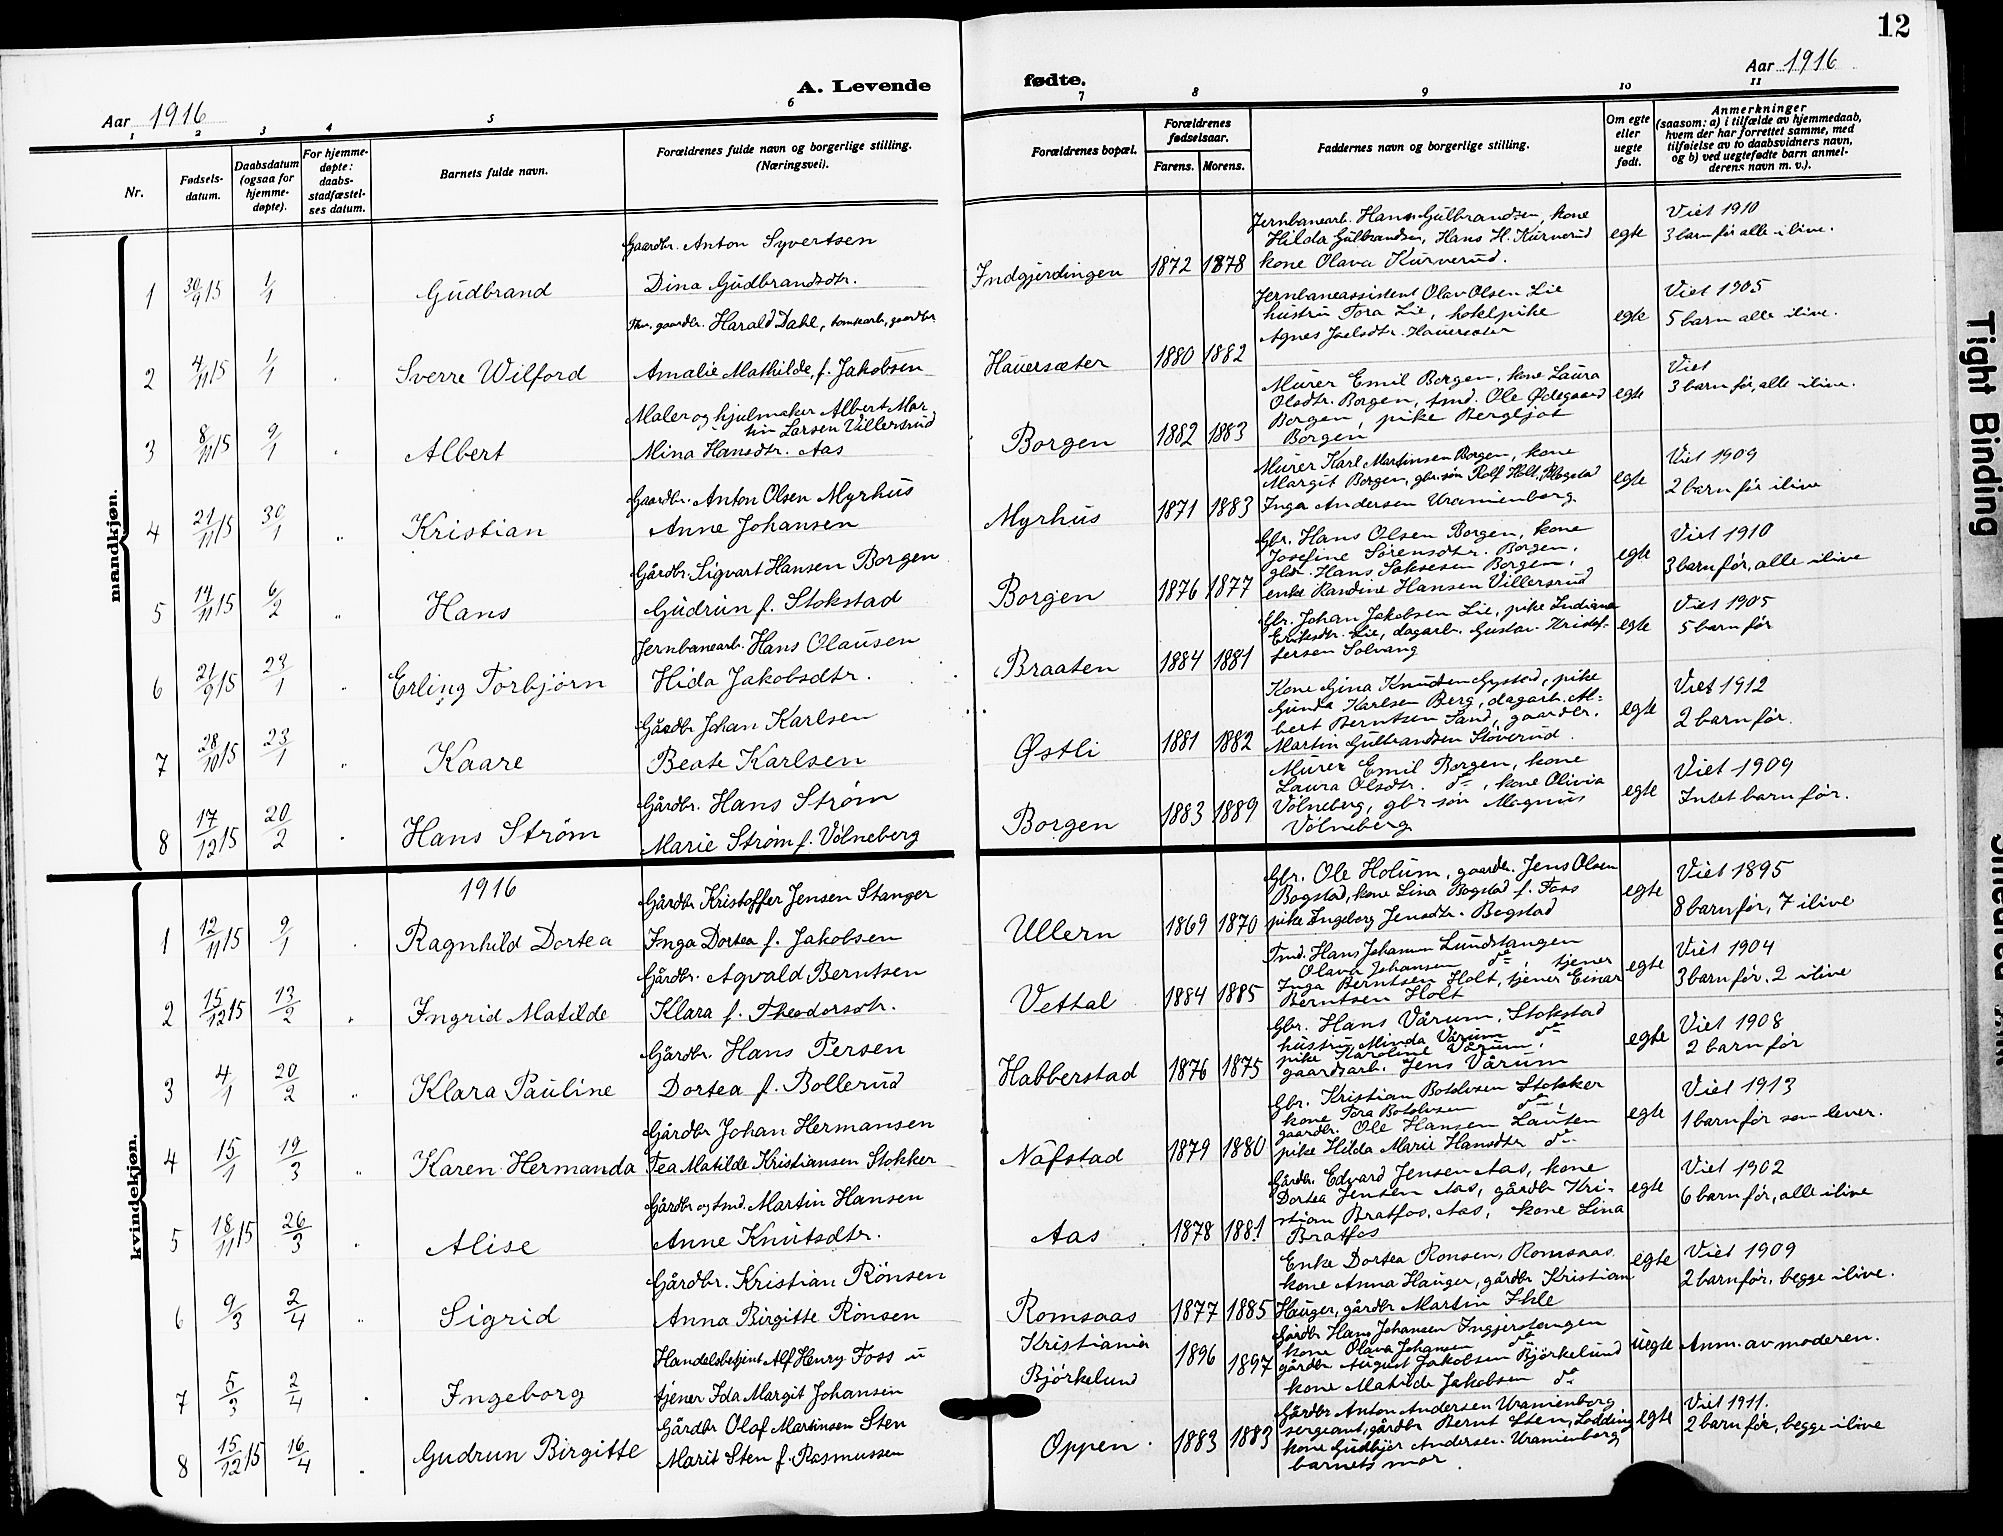 12
A. Levende
fødte.
Aar 1916
Aar 1916
1 2 3 4 5 6
7 8 9 10 11
Nr.
Fødsels-
datum.
Daabsdatum
(ogsaa for
hjemme-
døpte).
For hjemme-
døpte:
daabs-
stadfæstel-
ses datum.
Barnets fulde navn.
Forældrenes fulde navn og borgerlige stilling.
(Næringsvei).
Forældrenes bopæl.
Forældrenes
fødselsaar.
Farens. Morens.
Faddernes navn og borgerlige stilling.
Om egte
eller
uegte
født.
Anmerkninger
(saasom: a) i tilfælde av hjemmedaab,
hvem der har forrettet samme, med
tilføielse av to daabsvidners navn,
og b) ved uegtefødte barn anmel-
derens navn m. v.).
mandkjøn.
1 30/9 15 1/1 Gudbrand
Gaardbr. Anton Syvertsen
Dina Gudbrandsdtr.
Indgjerdingen 1872 1878
Jernbanearb. Hans Gulbrandsen, kone
Hilda Gulbrandsen, Hans H. Kurverud
kone Olava Kurverud.
egte
Viet 1910
3 barn før alle ilive.
2 4/11 15 1/1 Sverre Wilford
Fhv. gaardbr. Harald Dahl, tomtearb, gaardbr
Amalie Mathilde, f. Jakobsen
Hauersæter 1880 1882
Jernbaneassistent Olav Olsen Lie
hustru Tora Lie, hotelpike
Agnes Joelsdtr. Hauersæter
egte
Viet 1905
5 barn alle ilive.
3 8/11 15 9/1 Albert
Maler og hjulmaker Albert Mar
tin Larsen Villersrud
Mina Hansdtr. Aas
Borgen 1882 1883
Murer Emil Borgen, kone Laura
Olsdtr. Borgen, smd. Ole Ødegaard
Borgen, pike Bergljot
Borgen
egte
Viet
3 barn før, alle ilive.
4 21/11 15 30/1 Kristian
Gaardbr. Anton Olsen Myrhus
Anne Johansen
Myrhus 1871 1883
Murer Karl Martinsen Borgen, kone
Margit Borgen, gbr.søn Rolf Holt, Bogstad
Inga Andersen Uranienborg
egte
Viet 1909
2 barn før ilive
5 14/11 15 6/2 Hans
Gårdbr. Sigvart Hansen Borgen
Gudrun f. Stokstad
Borgen 1876 1877
Gbr. Hans Olsen Borgen, kone
Josefine Sørensdtr. Borgen,
Hans Borgen,
enke Randine Hansen Villersrud
egte
Viet 1910
3 barn før, alle ilive
6 21/9 15 23/1 Erling Torbjørn
Jernbanearb. Hans Olausen
Hida Jakobsdtr.
Braaten 1884 1881
Gbr. Johan Jakobsen Lie, pike Indiana
Eriksdtr. Lie, dagarb. Gustav Kristof-
fersen Solvang
egte
Viet 1905
5 barn før
7 28/10 15 23/1 Kaare
Gårdbr Johan Karlsen
Beate Karlsen
Østli 1881 1882
Kone Gina Knudsen Gystad, pike
Gunda Karlsen Berg, dagarb. Al-
bert Berntsen Sand, gaardbr.
Martin Gulbrandsen Støverud.
egte
Viet 1912
2 barn før.
8 17/12 15 20/2 Hans Strøm
Gårdbr. Hans Strøm
Marie Strøm f. Volneberg
Borgen 1883 1889
Murer Emil Borgen, kone
Laura Olsdtr. do, kone Olivia
Volneberg, gbr søn Magnus
Volneberg
egte
Viet 1909
Intet barn før.
kvindekjøn.
1916
1 12/11 15 9/1 Ragnhild Dortea
Gårdbr Kristoffer Jensen Stanger
Inga Dortea f. Jakobsen
Ullern 1869 1870
Gbr. Ole Holum, gaardbr. Jens Olsen
Bogstad, kone Lina Bogstad f. Foss
pike Ingeborg Jensdtr. Bogstad
egte
Viet 1895
8 barn før, 7 ilive
2 15/12 15 13/2 Ingrid Matilde
Gårdbr. Agvald Berntsen
Klara f. Theodorsdtr.
Vettal 1884 1885
Tmd. Hans Johansen Lundstangen
Olava Johansen do, tjener
Inga Berntsen Holt, tjener Einar
Berntsen Holt
egte
Viet 1904
3 barn før. 2 ilive
3 4/1 20/2 Klara Pauline
Gårdbr. Hans Persen
Dortea f. Bollerud
Habberstad 1876 1875
Gbr. Hans Vårum, Stokstad
hustru Minda Vårum do
pike Karoline Vårum,
gaardsarb. Jens Vårum
egte
Viet 1908
2 barn før
4 15/1 19/3 Karen Hermanda
Gårdbr Johan Hermansen
Tea Matilde Kristiansen Stokker
Nafstad 1879 1880
Gbr. Kristian Botolvsen Stokker
kone Tora Botolvsen do,
gaardbr. Ole Hansen Lauten
pike Hilda Marie Hansdtr do
egte
Viet 1913
1 barn før som lever.
5 18/11 15 26/3 Alise
Gårdbr og smd. Martin Hansen
Anne Knutsdtr.
Aas 1878 1881
Gårdbr. Edvard Jensen Aas, kone
Dortea Jensen Aas, gårdbr Kri-
stian Bratfos, Aas, kone Lina
Bratfos
egte
Viet 1902
6 barn før, alle ilive
6 9/3 2/4 Sigrid
Gårdbr. Kristian Rönsen
Anna Birgitte Rönsen
Romsaas 1877 1885
Enke Dortea Ronsen, Romsaas
kone Anna Hauger, gårdbr Kristian
Hauger, gårdbr Martin Ihle
egte
Viet 1909
2 barn før, begge ilive.
7 5/3 2/4 Ingeborg
Handelsbetjent Alf Henry Foss u
tjener Ida Margit Johansen
Kristiania
Bjørkelund
1896 1897
Gårdbr Hans Johansen Ingjerstangen
kone Olava Johansen do
gårdbr August Jakobsen Bjørkelund
kone Matilde Jakobsen do
uegte
Anm. av moderen.
8 15/12 15 16/4 Gudrun Birgitte
Gårdbr Olaf Martinsen Sten
Marit Sten f. Rasmussen
Oppen. 1883 1883
Gårdbr Anton Andersen Uranienborg
sergeant, gårdbr Bernt Sten, Lodding
kone Gudbjør Andersen Uranienborg
barnets mor.
egte
Viet 1911.
2 barn før, begge ilive
Tight Binding